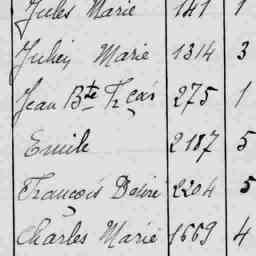 Jules Marie 141 1
Julien Marie 1314 3
Jean Bte Fçois 275 1
Emile 2187 5
François Désiré 2204 5
Charles Marie 1609 4